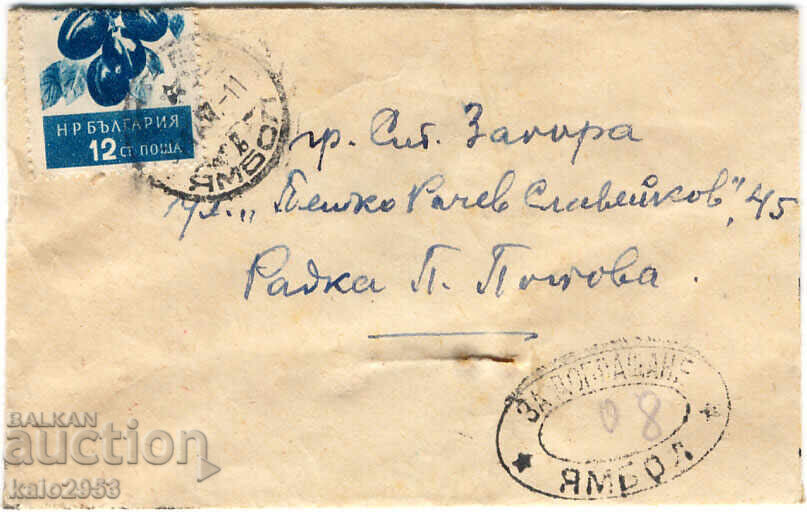 НР БЪЛГАРИЯ
12 СТ. ПОЩА
ЯМБОЛ
гр. Ст. Загора
ул. „Петко Рачев Славейков", 45
Радка П. Попова
ЗА ДОПЛАЩАНЕ
08
ЯМБОЛ
BALKAN
auction
kalo2953